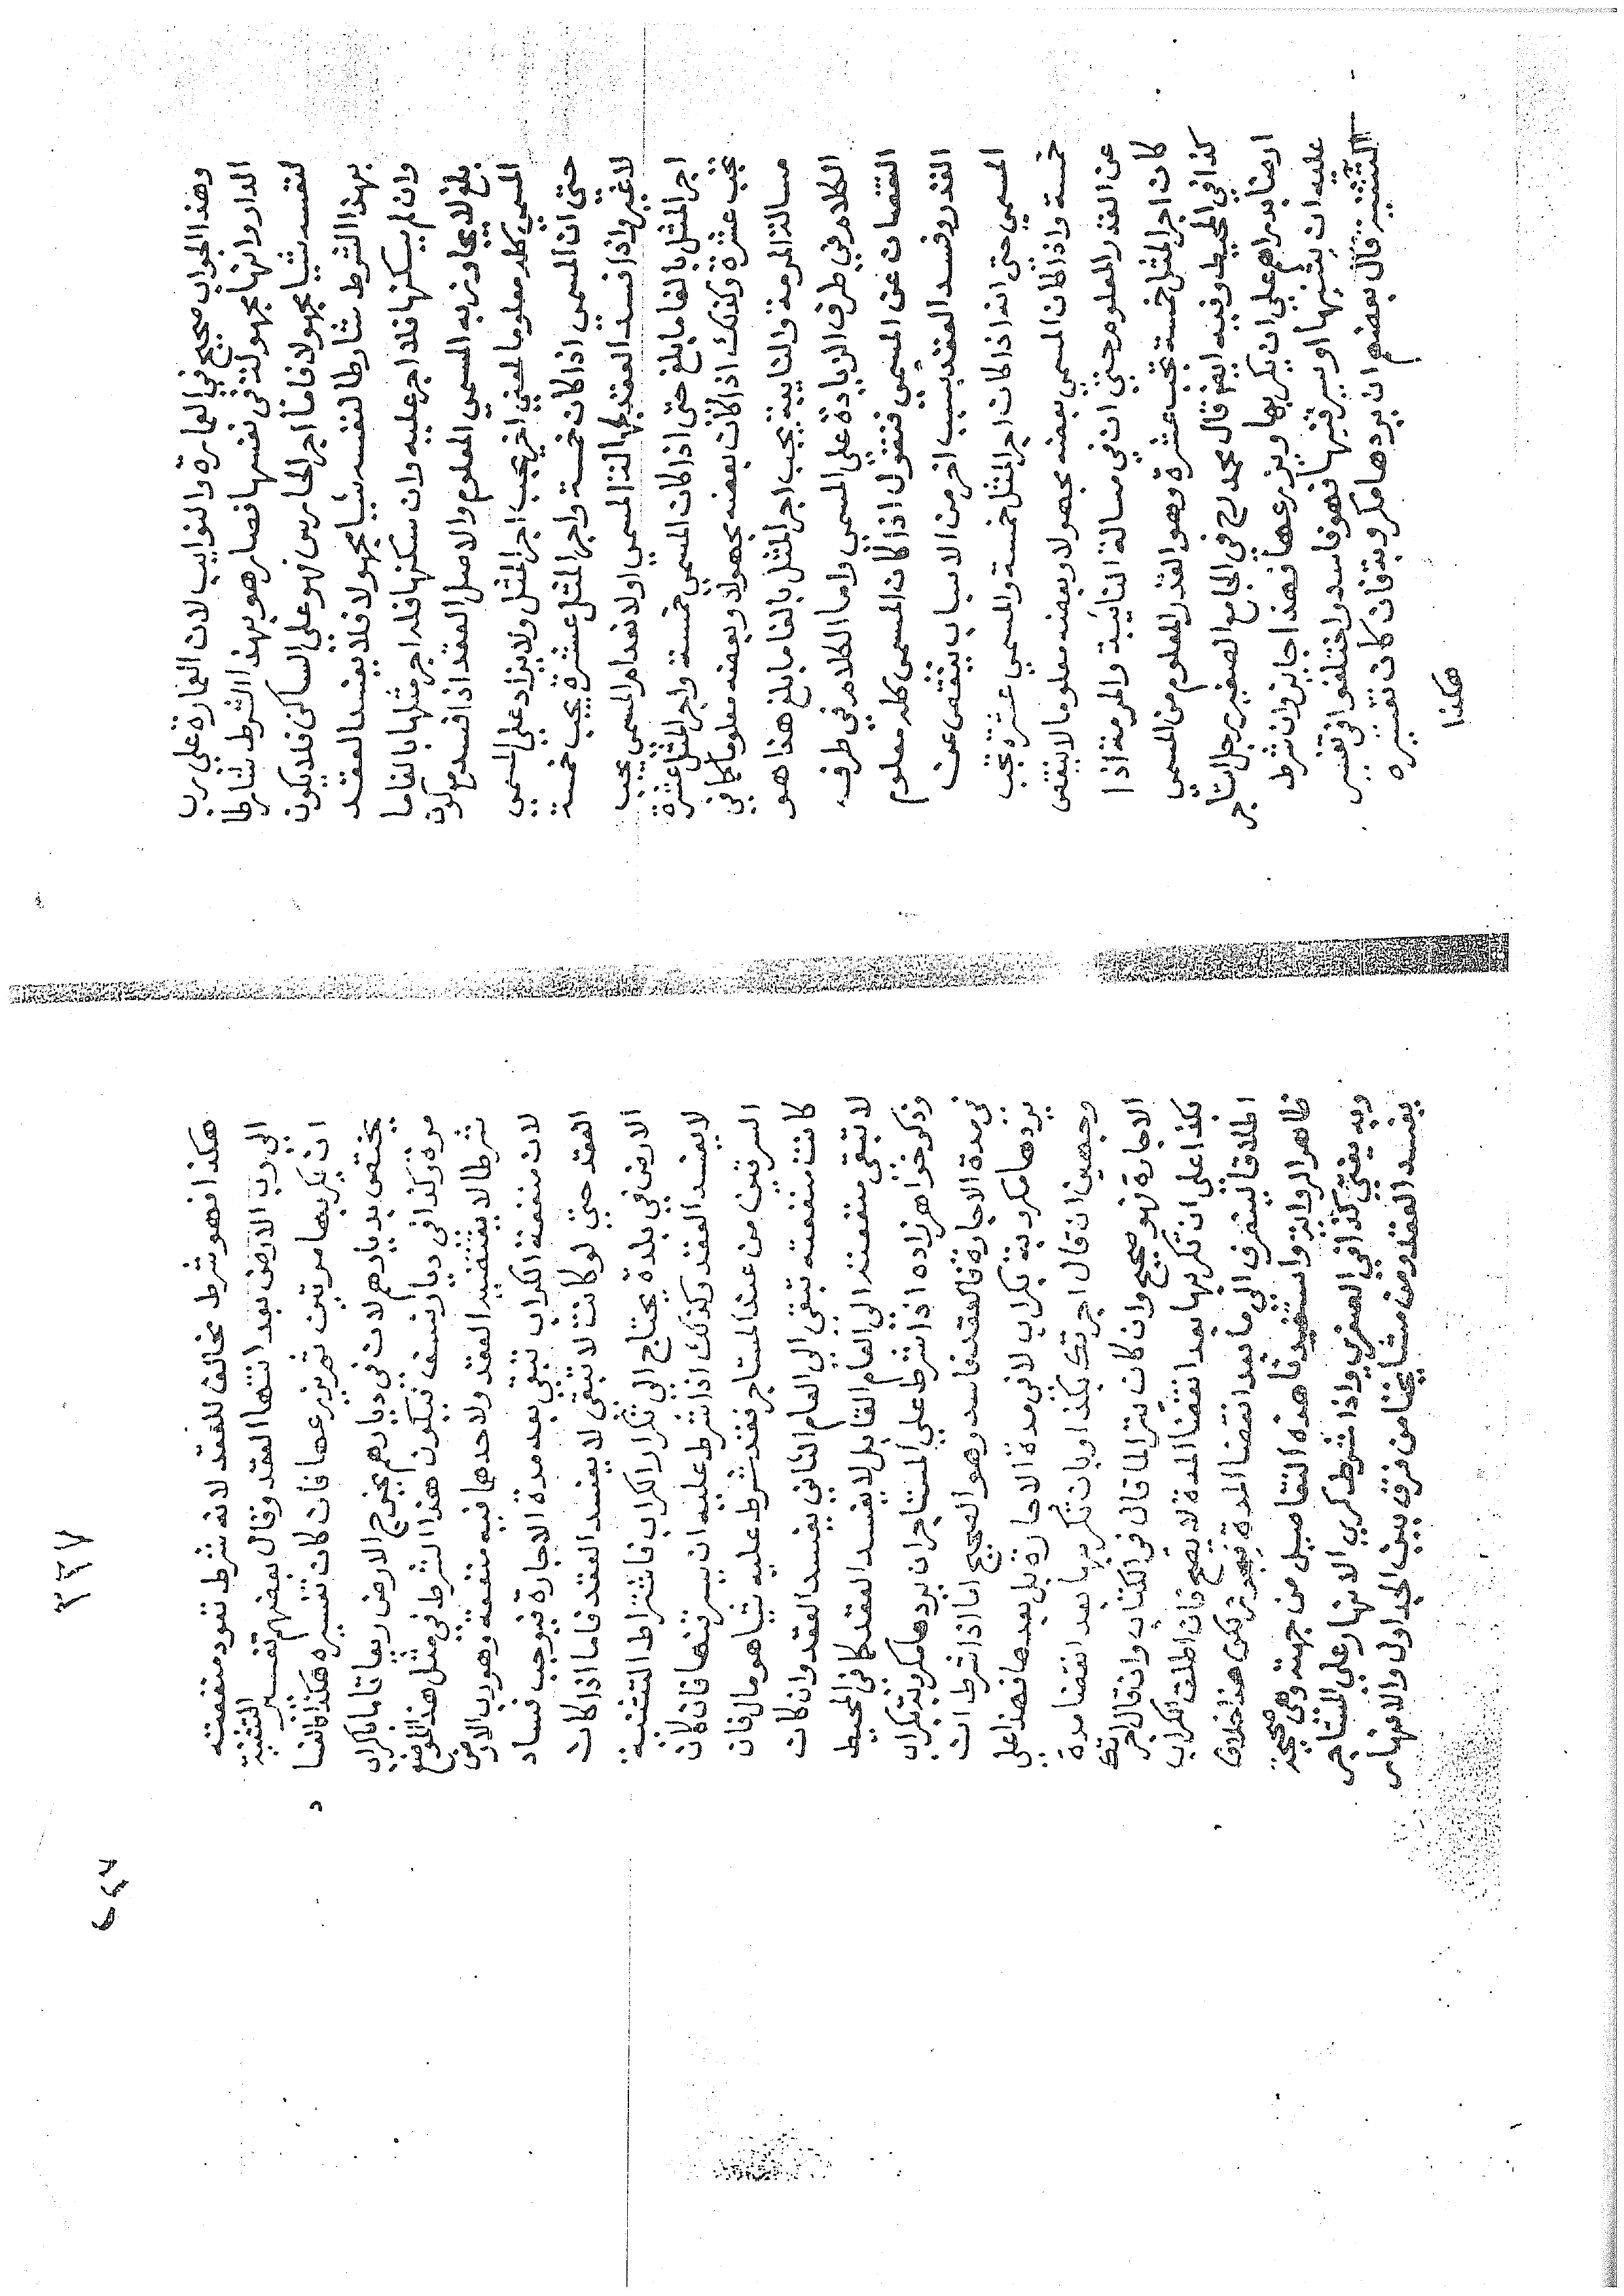 وهذا الجواب صحيح في العمارة والنوايب لان العمارة على رب
الدار وانها مجهولة في نفسها فصار هو بهذا الشرط شارطا
لنفسه شيا مجهولا فاما اجر الحارس فهو على الساكن فلا يكون
بهذا الشرط شارطا لنفسه شيا مجهولا فلا يفسد العقد
وان لم يسكنها فلا اجر عليه وان سكنها فله اجر مثلها بالغا ما
بلغ لا يجاوز به المسمي المعلوم والاصل ان العقد اذا فسد مع كون
المسمي كله معلوما لمعني اخر يجب اجر المثل ولا يزاد على المسمي
حتى ان المسمي اذا كان خمسة واجر المثل عشرة يجب خمسة
لا غير واذا فسد العقد لجهالة المسمي او لانعدام المسمى يجب
اجر المثل بالغا ما بلغ حتى اذا كان المسمى خمسة واجر المثل عشرة
تجب عشرة وكذلك اذا كان بعضه مجهولا وبعضه معلوما كما في
مسالة المرمة والنايبة يجب اجر المثل بالغا ما بلغ هذا هو
الكلام في طرف الزيادة على المسمي واما الكلام في طرف
النقصان عن المسمي فنقول اذا كان المسمى كله معلوم
القدر وفسد العقد بسبب اخر من الاسباب ينقص عن
المسمي حتى انه اذا كان اجر المثل خمسة والمسمي عشرة تجب
خمسة واذا كان المسمي بعضه مجهولا وبعضه معلوما لا ينقص
عن القدر المعلوم حتى ان في مسالة النائبة والمرمة اذا
كان اجر المثل خمسة تجب عشرة وهو القدر المعلوم من المسمى
كذا في المحيط وفيه ايضا قال محمد رح في الجامع الصغير رجل استاجر
ارضا بدراهم على ان يكربها ويزرعها فهذا جايز وان شرط
عليه ان يثنيها او يسرقنها فهو فاسد واختلفوا في تفسير
التثنية قال بعضهم ان يردها مكروبة فان كان تفسيره
هكذا
٣٢٧
٤٢٧
هكذا فهو شرط مخالف للعقد لانه شرط تعود منفعته
الى رب الارض بعد انتها العقد وقال بعضهم تفسير التثنية
ان يكربها مرتين ثم يزرعها فان كان تفسيره هكذا فالفسا
د
يختص بديارهم لان في ديارهم تخرج الارض ريعا تاما بالكراب
مرة كذا في ديار نسف فيكون هذا الشرط في مثل هذا الموضع
شرطا لا يقتضيه العقد ولاحدهما فيه منفعة وهو رب الارض
لان منفعة الكراب تبقى بعد مدة الاجارة فيوجب فساد
العقد حتى لو كانت لا تبقى لا يفسد العقد فاما اذا كان
الارض في بلدة يحتاج الى تكرار الكراب فاشتراط التثنية
لا يفسد العقد وكذلك اذا شرط عليه ان يسرقنها فان كان
السرقين من عند المستاجر فقد شرط عليه شيا هو مال فان
كانت منفعته تبقى الى العام الثاني يفسد العقد وان كان
لا تبقى منفعته الى العام القابل لا يفسد العقد كما في المحيط
وذكر خواهر زاده اذا شرط على المستاجر ان يردها مكروبة بكراب
في مدة الاجارة فالعقد فاسد وهو الصحيح اما اذا شرط ان
يردها مكروبة بكراب لا في مدة الاجارة بل بعدها فهذا على
وجهين ان قال اجرتك بكذا وبان تكربها بعد انقضا مدة
الاجارة فهو صحيح وان كان شرا لما قال في الكتاب وان قال اجرتك
بكذا على ان تكربها بعد انقضا المدة لا يصح فان اطلق الكراب
اطلاقا ينصرف الى ما بعد انقضا المدة هذا خلاف
ظاهر الرواية واستفيد هذه التفاصيل من جهته وهي صحيحة
وبه يفتي كذا في الصغرى واذا شرط كري الانهار على المستاجر
يفسد العقد ومن مشايخنا من فرق بين الجداول والانهار